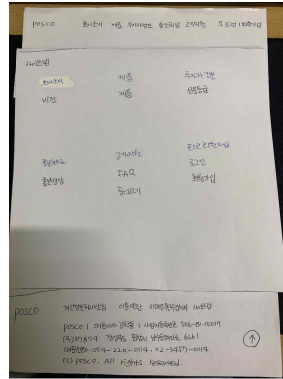 posco 회사소개 제품 투자자정보 홍보채널 고객지원 로그인 | 회원가입
사이트맵
회사소개 제품 투자자정보
비전 제품 신용등급
홍보채널 고객지원
홍보영상 FAQ 로그인
문의하기 회원가입
posco 개인정보처리방침 이용약관 이메일무단수집거부 사이트맵
posco | 대표이사 김학동 | 사업자등록번호 506-81-00017
(우)37859 경상북도 포항시 남구 동해안로 6261
대표전화 054-220-0114, 02-3457-0114
(C) posco, All rights reserved